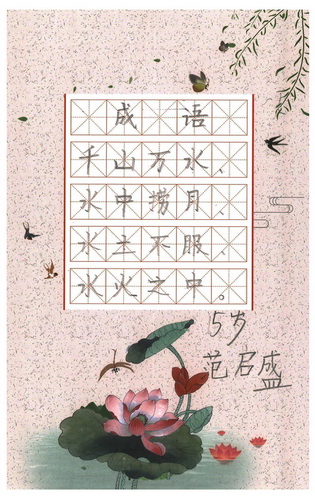 成语
千山万水、
水中捞月、
水土不服、
水火之中。
5岁
范启盛